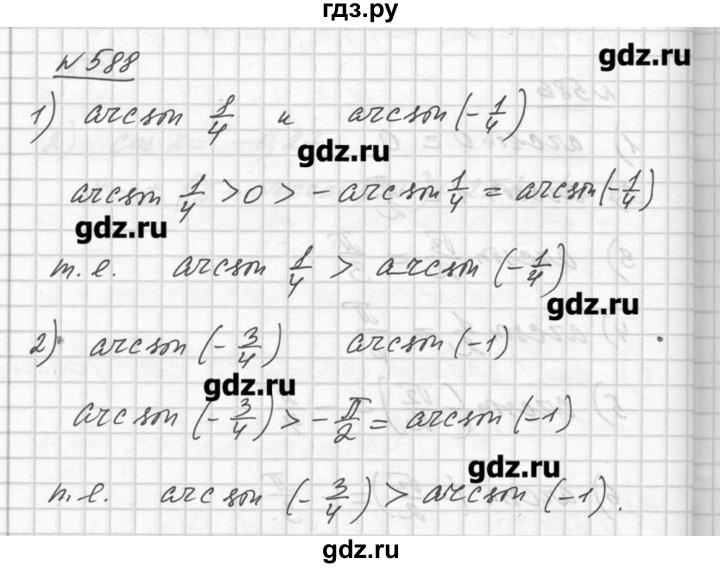 гдз.ру
№588
gdz.ru
1) arcsin 1/4 и arcsin (-1/4)
gdz.ru
arcsin 1/4 > 0 > - arcsin 1/4 = arcsin (-1/4)
gdz.ru
т.е. arcsin 1/4 > arcsin (-1/4)
gdz.ru
2) arcsin (-3/4) arcsin (-1)
gdz.ru
arcsin (-3/4) > -π/2 = arcsin (-1)
gdz.ru
т.е. arcsin (-3/4) > arcsin (-1).
gdz.ru